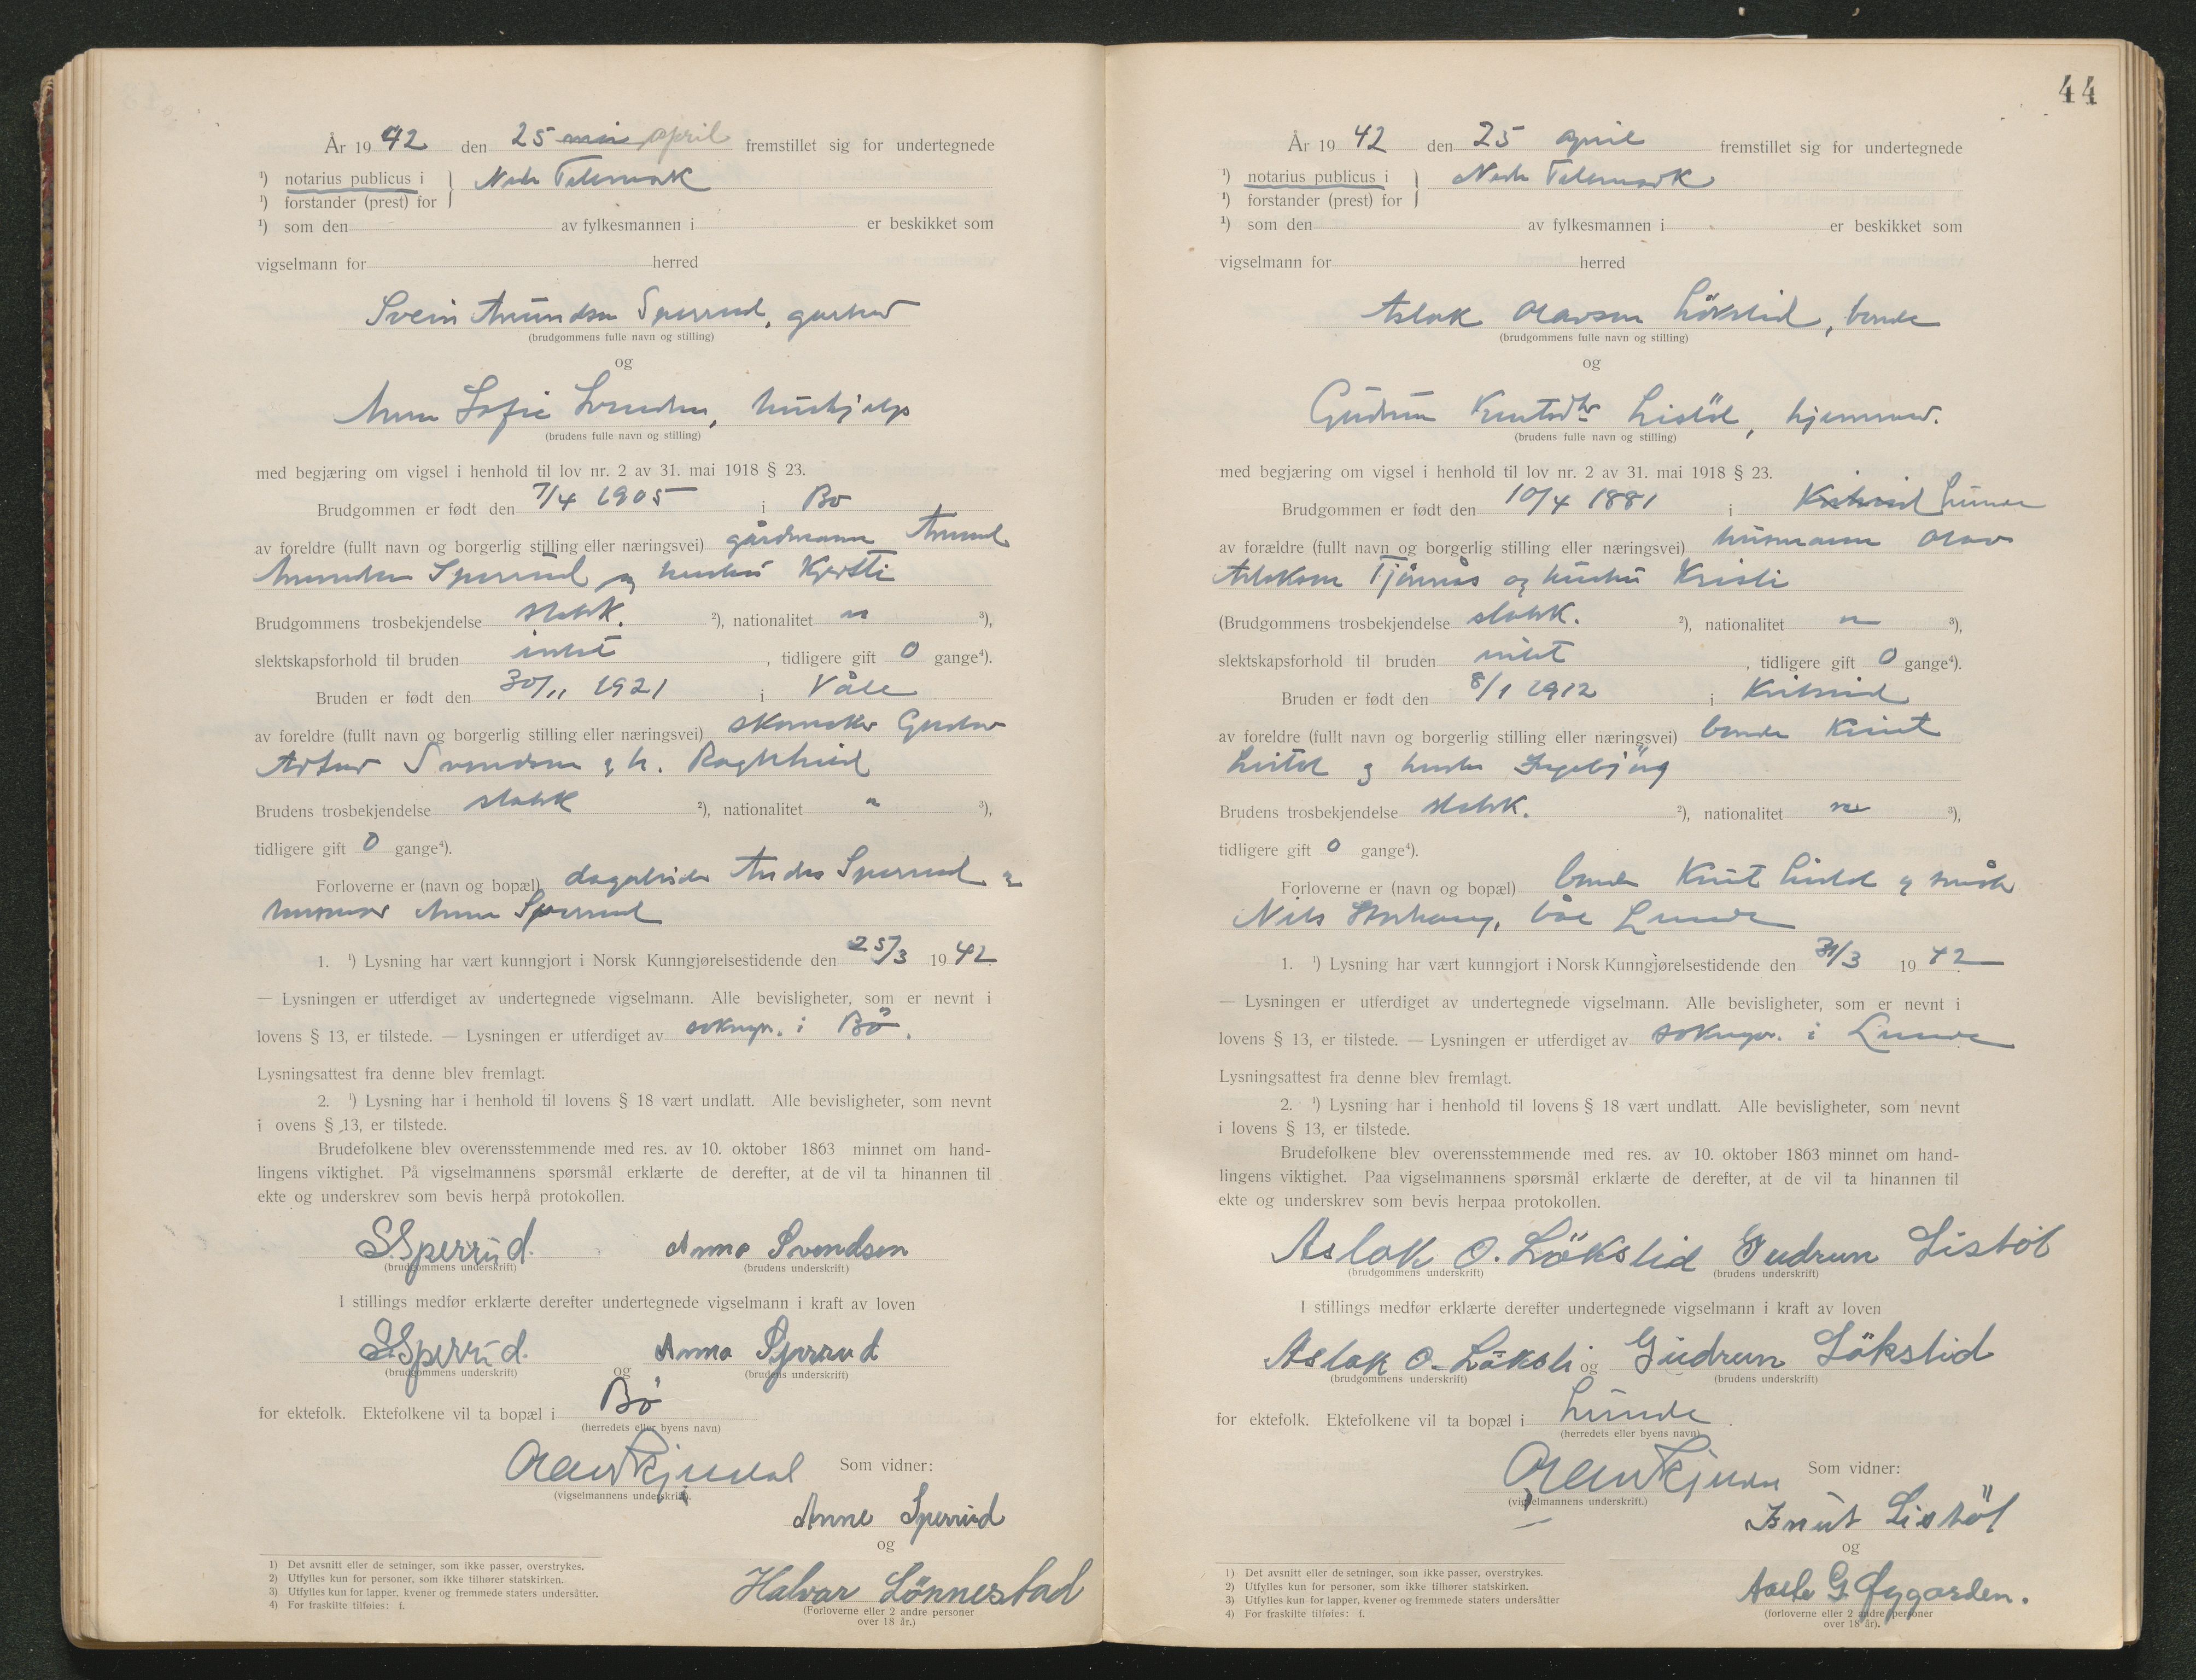 År 1942 den 25 mai april fremstillet sig for undertegnede
¹) notarius publicus i Nedr Telemark
¹) forstander (prest) for
¹) som den av fylkesmannen i er beskikket som
vigselmann for herred
Svein Amundsen Sperrud,
(brudgommens fulle navn og stilling)
og
Anna Sofie Svendsen, hushjelp
(brudens fulle navn og stilling)
med begjæring om vigsel i henhold til lov nr. 2 av 31. mai 1918 § 23.
Brudgommen er født den 7/4 1905 i Bø
av foreldre (fullt navn og borgerlig stilling eller næringsvei) gårdmann Amund
Amundsen Sperrud og hustru Kjersti
Brudgommens trosbekjendelse statsk. ²), nationalitet n ³),
slektskapsforhold til bruden intet , tidligere gift 0 gange⁴).
Bruden er født den 30/11 1921 i Våle
av foreldre (fullt navn og borgerlig stilling eller næringsvei) skomaker Gustav
Artur Svendsen og h. Ragnhild
Brudens trosbekjendelse statsk ²), nationalitet n ³),
tidligere gift 0 gange⁴).
Forloverne er (navn og bopæl) Sperrud og
Anne Sperrud
1. ¹) Lysning har vært kunngjort i Norsk Kunngjørelsestidende den 25/3 1942
— Lysningen er utferdiget av undertegnede vigselmann. Alle bevisligheter, som er nevnt i
lovens § 13, er tilstede. — Lysningen er utferdiget av soknepr. i Bö.
Lysningsattest fra denne blev fremlagt.
2. ¹) Lysning har i henhold til lovens § 18 vært undlatt. Alle bevisligheter, som nevnt
i ovens § 13, er tilstede.
Brudefolkene blev overensstemmende med res. av 10. oktober 1863 minnet om hand-
lingens viktighet. På vigselmannens spørsmål erklærte de derefter, at de vil ta hinannen til
ekte og underskrev som bevis herpå protokollen.
S. Sperrud. Anna Svendsen
(brudgommens underskrift) (brudens underskrift)
I stillings medfør erklærte derefter undertegnede vigselmann i kraft av loven
S. Sperrud. og Anna Sperrud
(brudgommens underskrift) (brudens underskrift)
for ektefolk. Ektefolkene vil ta bopæl i Bö
(herredets eller byens navn)
Som vidner:
(vigselmannens underskrift).
Anne Sperrud
og
Halvor Lönnestad
(Forloverne eller 2 andre personer
over 18 år.)
1) Det avsnitt eller de setninger, som ikke passer, overstrykes.
2) Utfylles kun for personer, som ikke tilhører statskirken.
3) Utfylles kun for lapper, kvener og fremmede staters undersåtter.
4) For fraskilte tilføies: f.
44
År 1942 den 25 april fremstillet sig for undertegnede
¹) notarius publicus i Nedr Telemark
¹) forstander (prest) for
¹) som den av fylkesmannen i er beskikket som
vigselmann for herred
Aslak Olavson Lökslid, bonde
(brudgommens fulle navn og stilling)
og
Gudrun Knutsdtr Listöl, hjemmev.
(brudens fulle navn og stilling)
med begjæring om vigsel i henhold til lov nr. 2 av 31. mai 1918 § 23.
Brudgommen er født den 10/4 1881 i Kviteseid Lunde
av forældre (fullt navn og borgerlig stilling eller næringsvei) husmann Olav
Aslakson Tjönnås og hustru Kristi
(Brudgommens trosbekjendelse statsk. ²), nationalitet n ³),
slektskapsforhold til bruden intet , tidligere gift 0 gange⁴).
Bruden er født den 8/1 1912 i Kviteseid
av foreldre (fullt navn og borgerlig stilling eller næringsvei) bonde Knut
Listöl og hustru Ingebjörg
Brudens trosbekjendelse statsk. ²), nationalitet n ³),
tidligere gift 0 gange⁴).
Forloverne er (navn og bopæl) bonde Knut Listöl og
Nils , Lunde
1. ¹) Lysning har vært kunngjort i Norsk Kunngjørelsestidende den 31/3 1942
— Lysningen er utferdiget av undertegnede vigselmann. Alle bevisligheter, som er nevnt i
lovens § 13, er tilstede. — Lysningen er utferdiget av soknepr. i Lunde
Lysningsattest fra denne blev fremlagt.
2. ¹) Lysning har i henhold til lovens § 18 vært undlatt. Alle bevisligheter, som nevnt
i lovens § 13, er tilstede.
Brudefolkene blev overensstemmende med res. av 10. oktober 1863 minnet om hand-
lingens viktighet. Paa vigselmannens spørsmål erklærte de derefter, at de vil ta hinannen til
ekte og underskrev som bevis herpaa protokollen.
Aslak O. Lökslid Gudrun Listöl
(brudgommens underskrift) (brudens underskrift)
I stillings medfør erklærte derefter undertegnede vigselmann i kraft av loven
Aslak O. Löksli og Gudrun Lökslid
(brudgommens underskrift) (brudens underskrift)
for ektefolk. Ektefolkene vil ta bopæl i Lunde.
(herredets eller byens navn)
Som vidner:
(vigselmannens underskrift.)
Knut Listöl
og
G. Øygarden.
(forloverne eller 2 andre personer
over 18 år).
1) Det avsnitt eller de setninger, som ikke passer, overstrykes.
2) Utfylles kun for personer, som ikke tilhører statskirken.
3) Utfylles kun for lapper, kvener og fremmede staters undersåtter
4) For fraskilte tilføies: f.